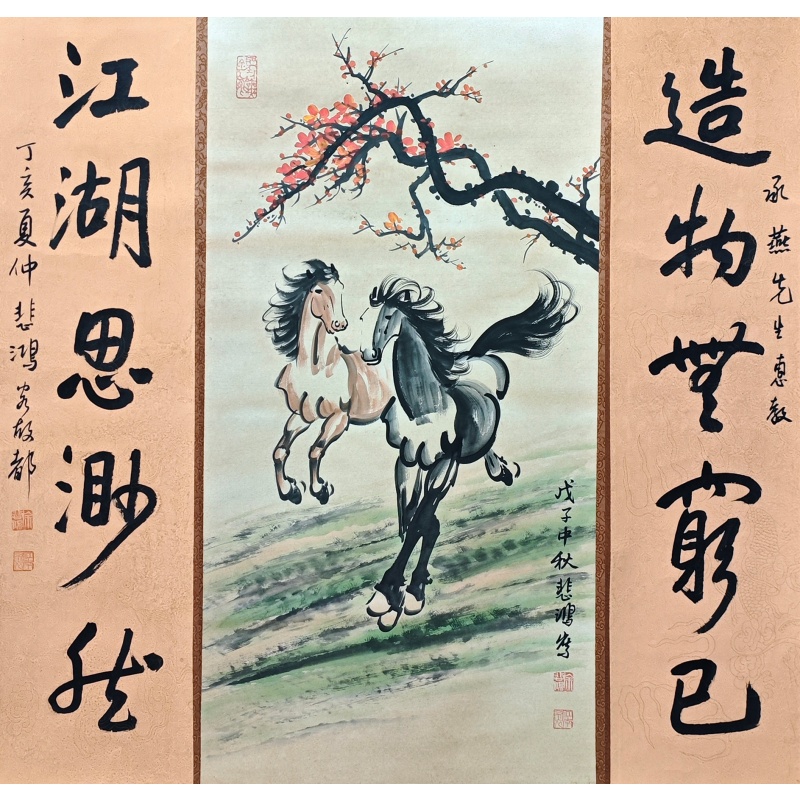 造物無窮已
承燕先生惠教
戊子中秋悲鴻寫
江湖思渺然
丁亥夏仲悲鴻客故都